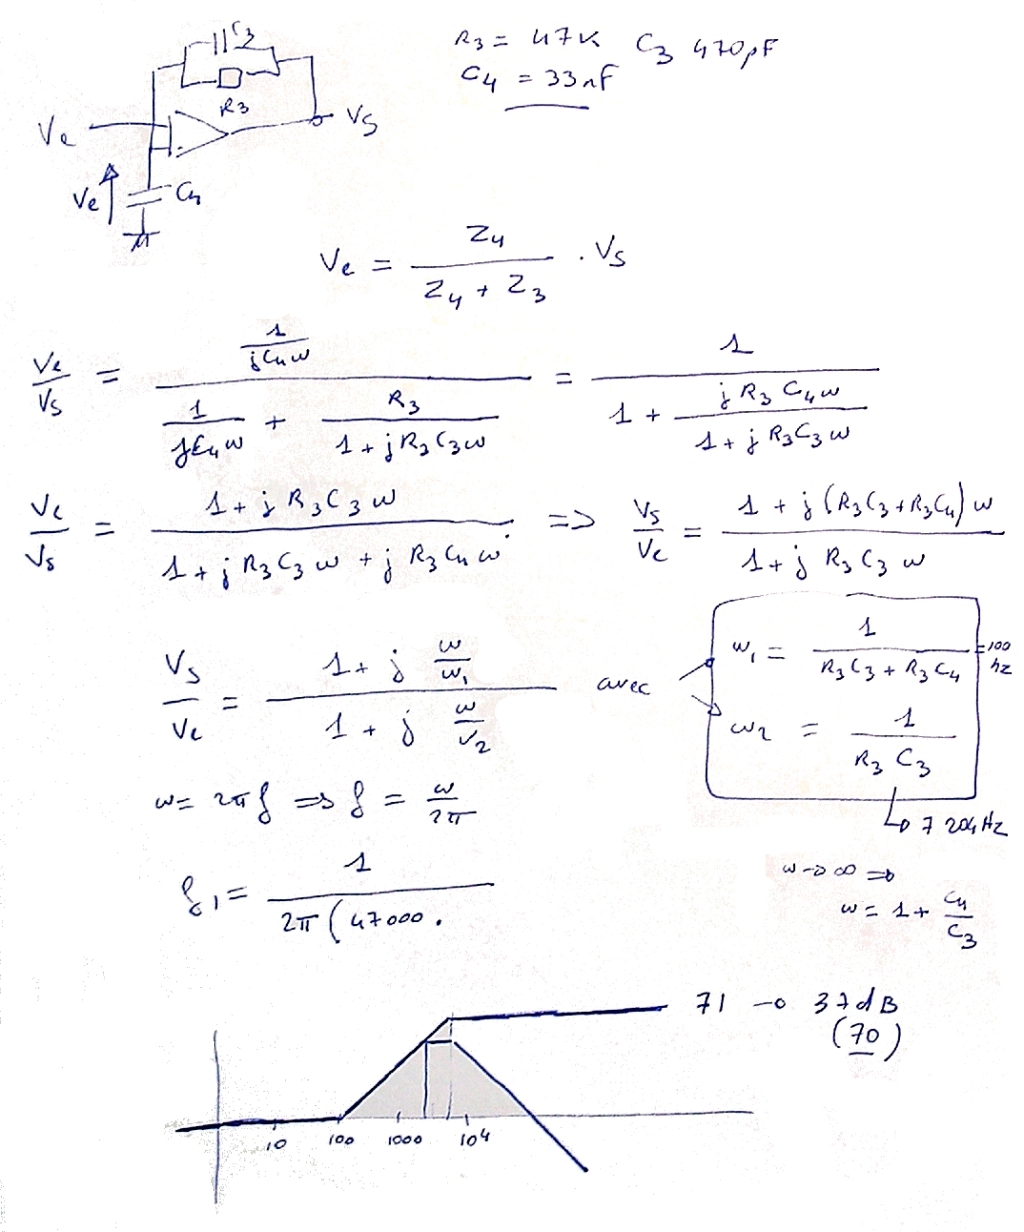 C3
R3
Ve
VS
Ve
C4
R3 = 47K C3 470pF
C4 = 33nF
Ve = Z4 / (Z4 + Z3) . VS
Ve/VS = (1/(jC4ω)) / (1/(jC4ω) + R3/(1 + jR3C3ω)) = 1 / (1 + jR3C4ω/(1 + jR3C3ω))
Ve/VS = (1 + jR3C3ω) / (1 + jR3C3ω + jR3C4ω) => VS/Ve = (1 + j(R3C3+R3C4)ω) / (1 + jR3C3ω)
VS/Ve = (1 + j ω/ω1) / (1 + j ω/ω2) avec
ω1 = 1 / (R3C3 + R3C4) = 100 hz
ω2 = 1 / (R3 C3)
7 204 Hz
ω = 2πf => f = ω/2π
ω → ∞ =>
ω = 1 + C4/C3
f1 = 1 / (2π(47000.
71 → 37dB
(70)
10 100 1000 10^4